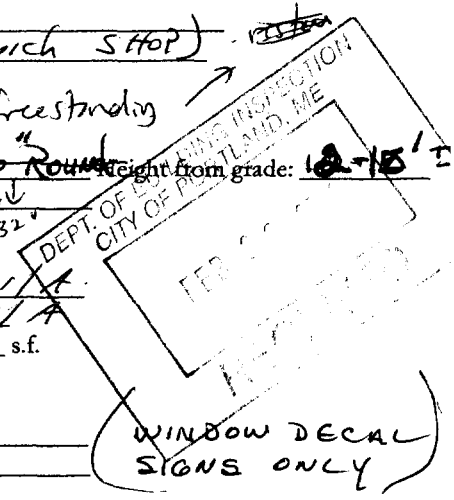 SHOP)
freestanding
Round Height from grade: 12-15'
32"
DEPT. OF BUILDING INSPECTION
CITY OF PORTLAND, ME
FEB
s.f.
WINDOW DECAL
SIGNS ONLY